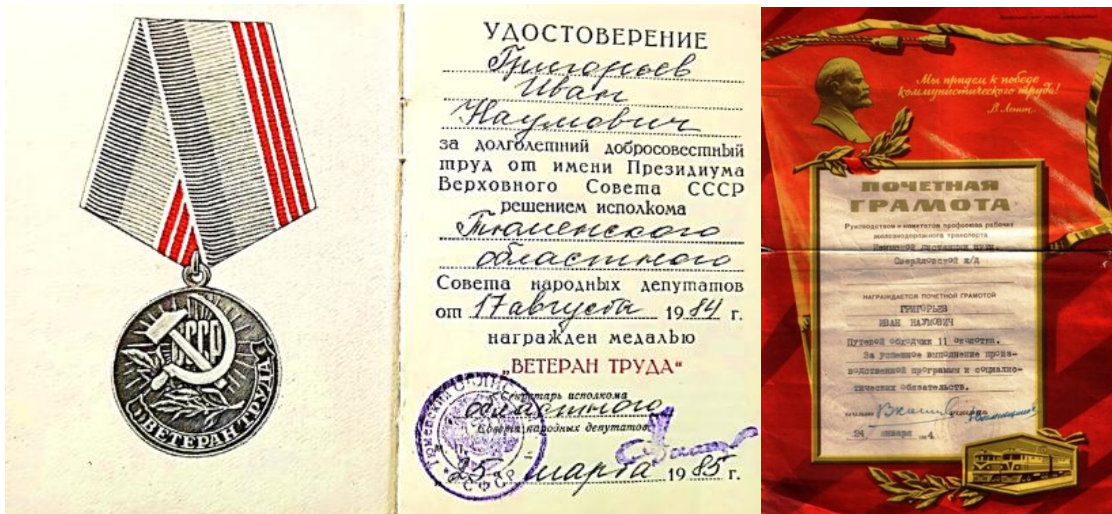 СССР
ВЕТЕРАН ТРУДА
УДОСТОВЕРЕНИЕ
Григорьев
Иван
Наумович
за долголетний добросовестный
труд от имени Президиума
Верховного Совета СССР
решением исполкома
Тюменского
областного
Совета народных депутатов
от 17 августа 1984 г.
награжден медалью
„ВЕТЕРАН ТРУДА“
Секретарь исполкома
областного
Совета народных депутатов
25 марта 1985 г.
Мы придем к победе
коммунистического труда!
В. Ленин
ПОЧЕТНАЯ
ГРАМОТА
Руководством и комитетом профсоюза рабочих
железнодорожного транспорта
дистанции пути
Свердловской ж/д
НАГРАЖДАЕТСЯ ПОЧЕТНОЙ ГРАМОТОЙ
ГРИГОРЬЕВ
ИВАН НАУМОВИЧ
Путевой обходчик 11 околотка.
За успешное выполнение произ-
водственной программы и социалис-
тических обязательств.
24 января